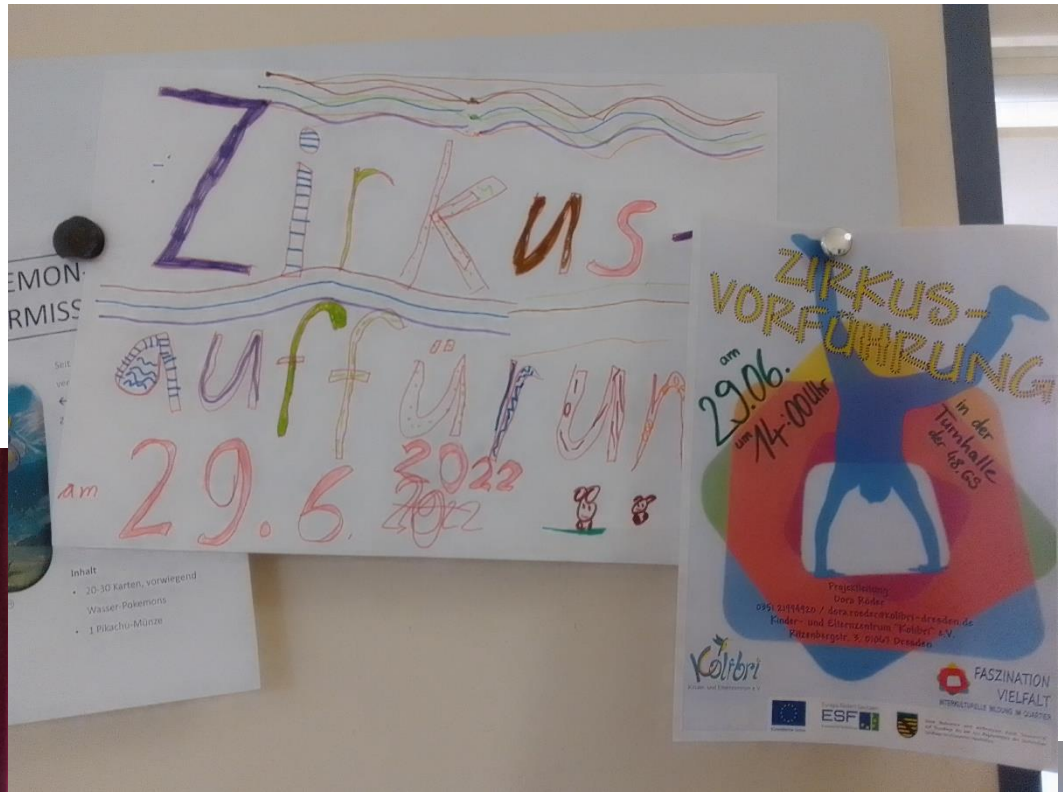 Zirkus-
auffürun
am 29.6. 2022
2022
EMON-
RMISS
Seit
ver
Inhalt
• 20-30 Karten, vorwiegend
Wasser-Pokemons
• 1 Pikachu-Münze
ZIRKUS-
VORFÜHRUNG
am
29.06.
um 14:00 Uhr
in der
Turnhalle
der 48.GS
Projektleitung
Dora Röder
0351 21994920 / dora.roeder@kolibri-dresden.de
Kinder- und Elternzentrum "Kolibri" e.V.
Ritzenbergstr. 3, 01067 Dresden
Kolibri
Kinder- und Elternzentrum e.V.
FASZINATION
VIELFALT
INTERKULTURELLE BILDUNG IM QUARTIER
Europäische Union
ESF